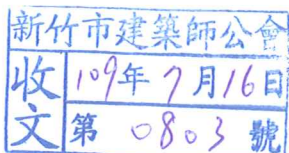 新竹市建築師公會
收文
109年7月16日
第 0803 號